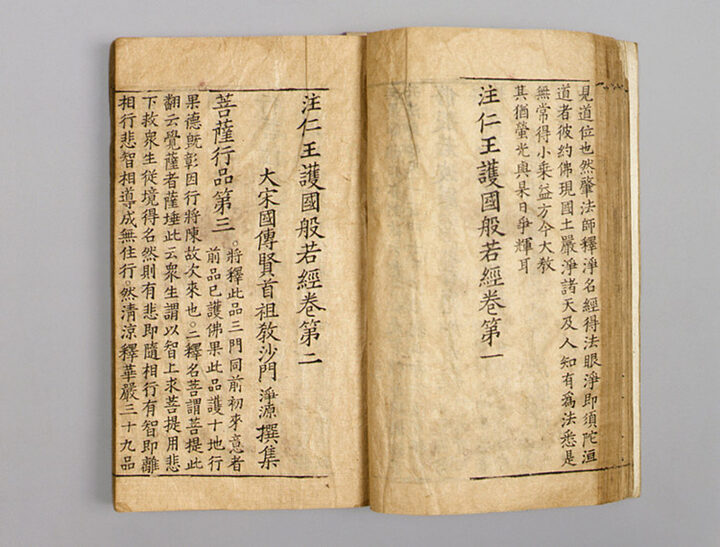 見道位也然肇法師釋淨名經得法眼淨即須陀洹
道者彼約佛現國土嚴淨諸天及人知有爲法悉是
無常得小乘益方今大教
其猶螢光與杲日爭輝耳
注仁王護國般若經卷第一
注仁王護國般若經卷第二
大宋國傳賢首祖敎沙門 淨源 撰集
菩薩行品第三
。將釋此品三門同前初來意者
前品已護佛果此品護十地行
果德旣彰因行將陳故次來也。二釋名菩謂菩提此
翻云覺薩者薩埵此云衆生謂以智上求菩提用悲
下救衆生從境得名然則有悲即隨相行有智即離
相行悲智相導成無住行。然清涼釋華嚴三十九品